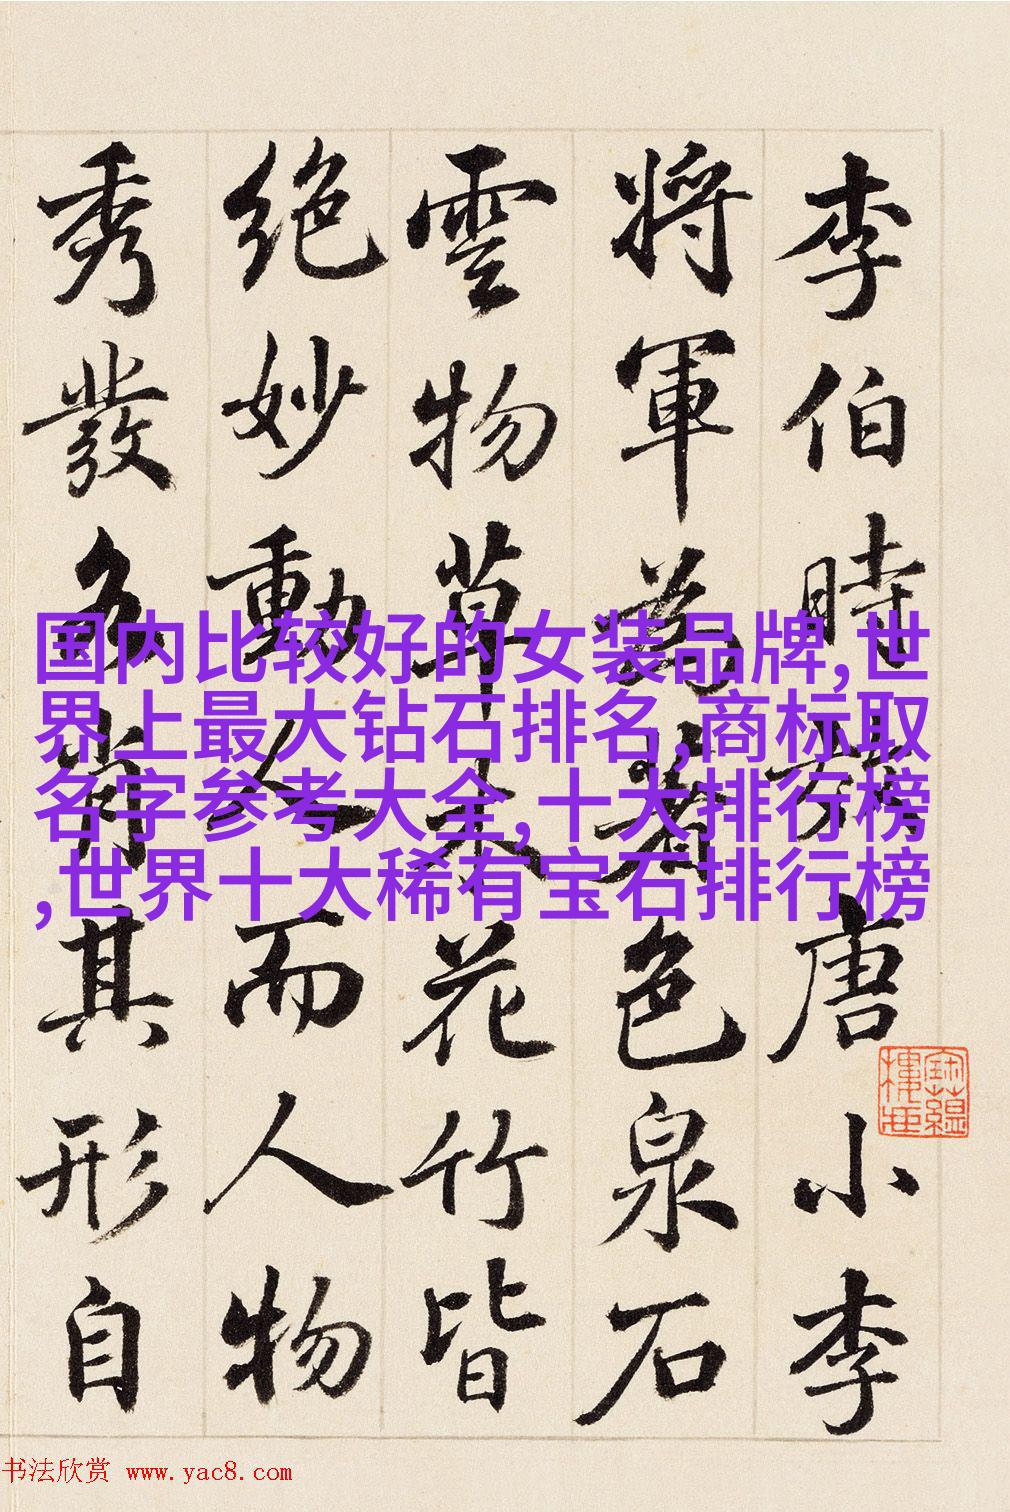 李伯時唐小李
將軍為著色泉石
雲物草木花竹皆
絕妙動人而人物
秀發各肖其形自
国内比较好的女装品牌,世
界上最大钻石排名,商标取
名字参考大全,十大排行榜
,世界十大稀有宝石排行榜
寶蘊樓
书法欣赏 www.yac8.com